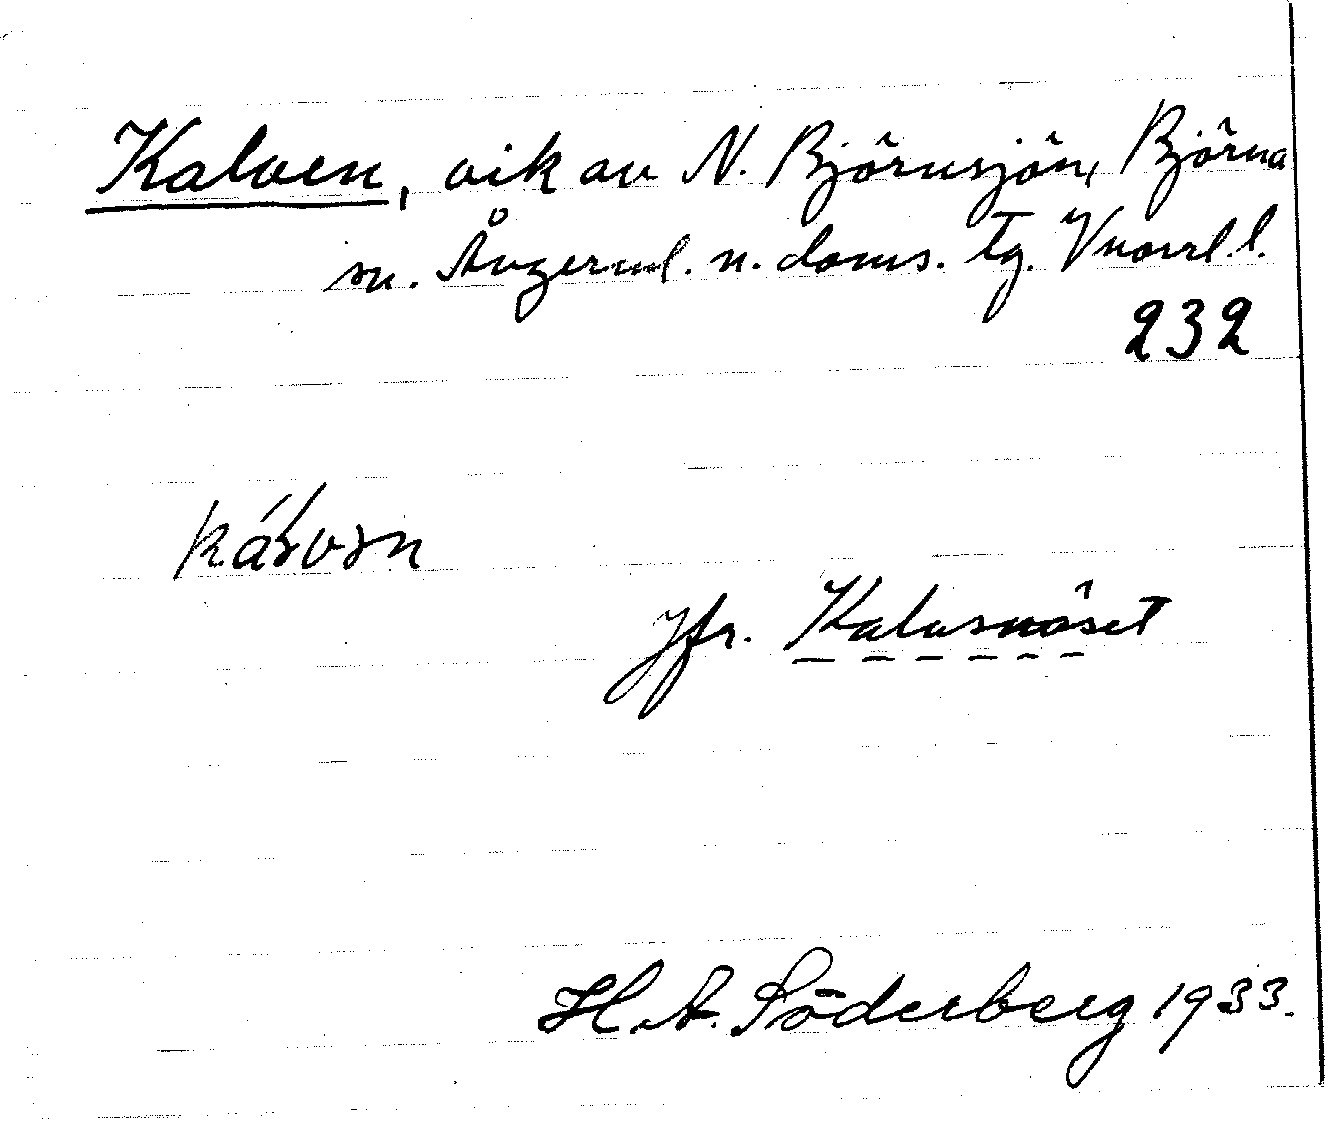 Kalven, vik av N. Björnsjön, Björna
sn. Ångerml. n. doms. Tg.
232
Jfr. Kalvsnäset
H.A. Söderberg 1933.